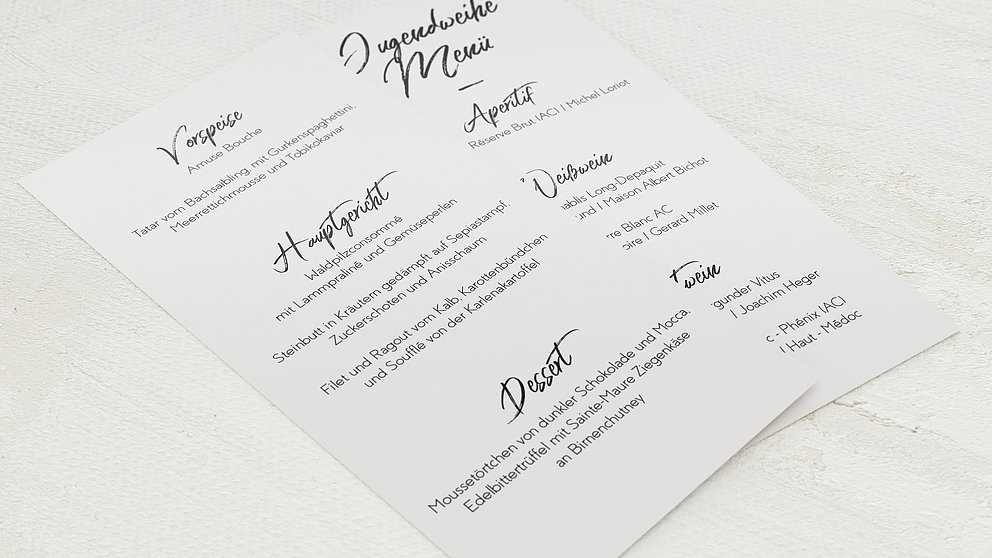 Vorspeise
Amuse Bouche
Tatar vom Bachsaibling, mit Gurkenspaghettini,
Meerrettichmousse und Tobikokaviar
Hauptgericht
Waldpilzconsommé
mit Lammpraliné und Gemüseperlen
Steinbutt in Kräutern gedämpft auf Sepiastampf,
Zuckerschoten und Anisschaum
Filet und Ragout vom Kalb, Karottenbündchen
und Soufflé von der Karlenakartoffel
Dessert
Moussetörtchen von dunkler Schokolade und Mocca,
Edelbittertrüffel mit Sainte-Maure Ziegenkäse
an Birnenchutney
Jugendweihe
Menü
Aperitif
Réserve Brut (AC) / Michel Loriot
Weißwein
ablis Long-Depaquit
und / Maison Albert Bichot
re Blanc AC
oire / Gerard Millet
twein
gunder Vitus
/ Joachim Heger
c - Phénix (AC)
/ Haut - Médoc